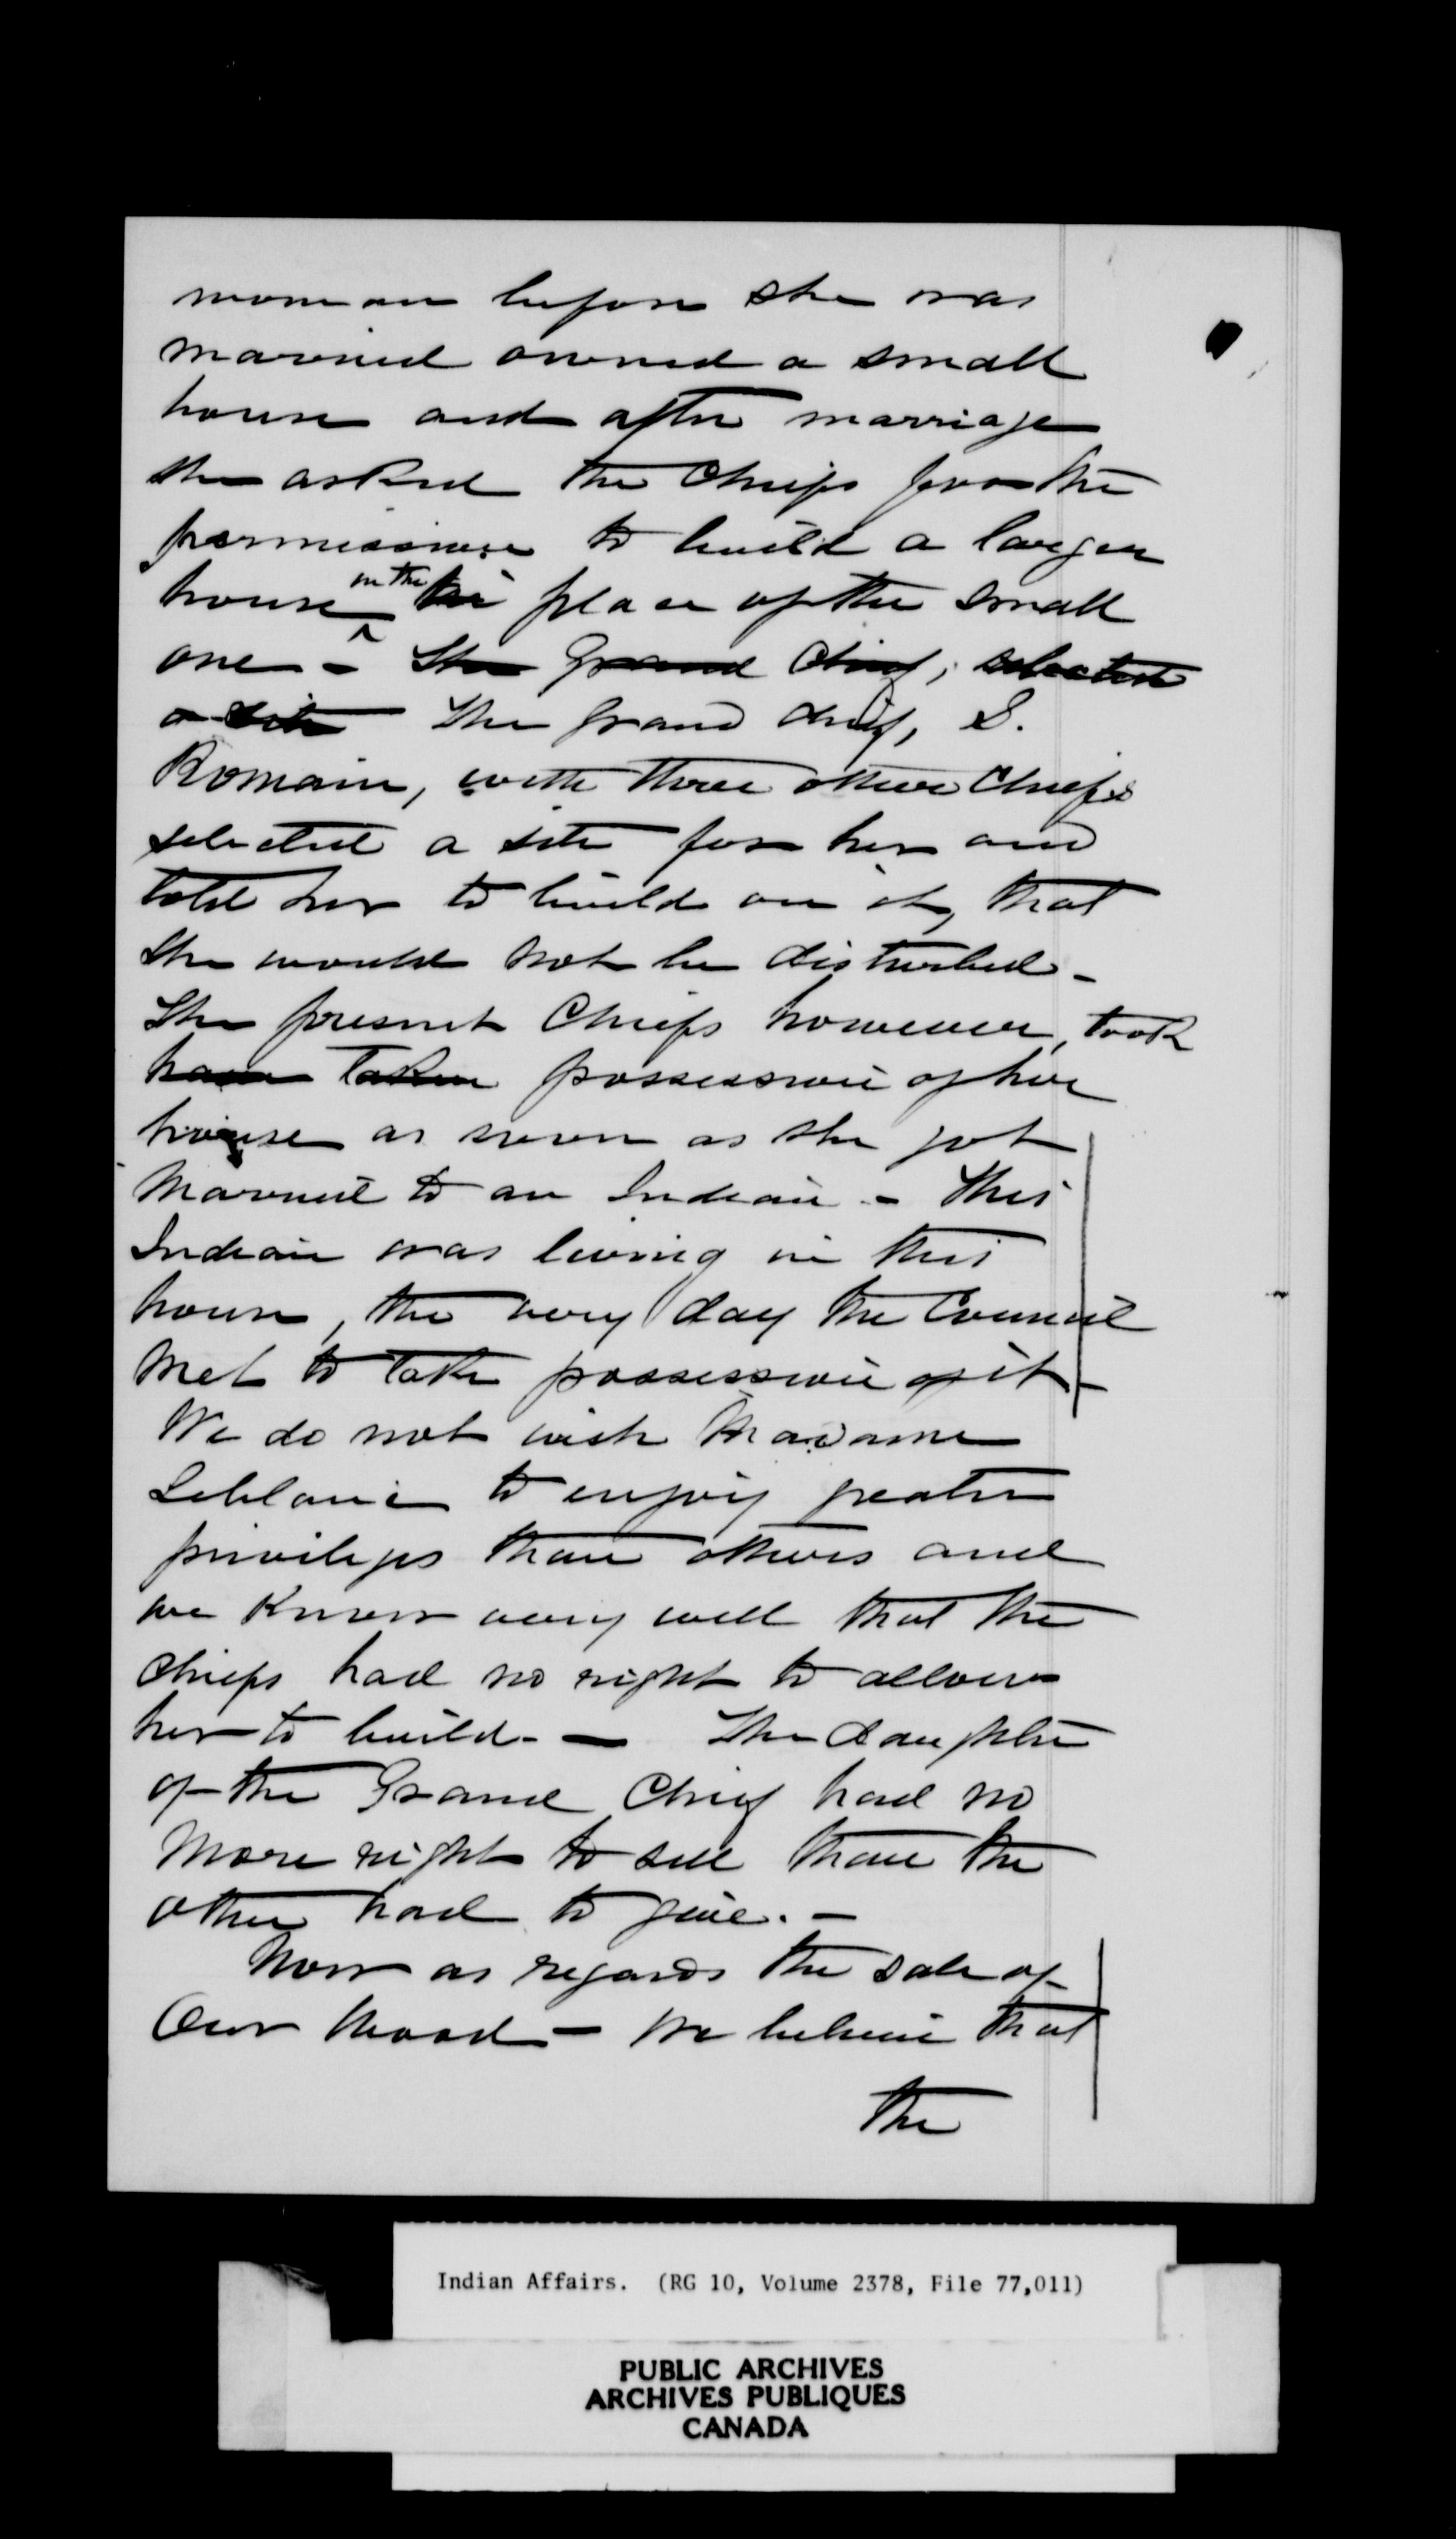 woman before she was
married owned a small
house and after marriage
she asked the Chiefs for the
permission to build a larger
house in the place of the small
one - The Grand Chief, selected
a site The Grand chief, S.
Romain, with three other Chiefs
selected a site for her and
told her to build on it, that
she would not be disturbed -
The present Chiefs however, took
have taken possession of her
house as soon as she got
married to an Indian - This
Indian was living in this
house, the very day the Council
met to take possession of it -
We do not wish Madame
Leblanc to enjoy greater
privileges than others and
we know very well that the
chiefs had no right to allow
her to build. - The daughter
of the Grand Chief had no
more right to sell than the
other had to give. -
Now as regards the sale of
Our Wood - We believe that
the
Indian Affairs. (RG 10, Volume 2378, File 77,011)
PUBLIC ARCHIVES
ARCHIVES PUBLIQUES
CANADA